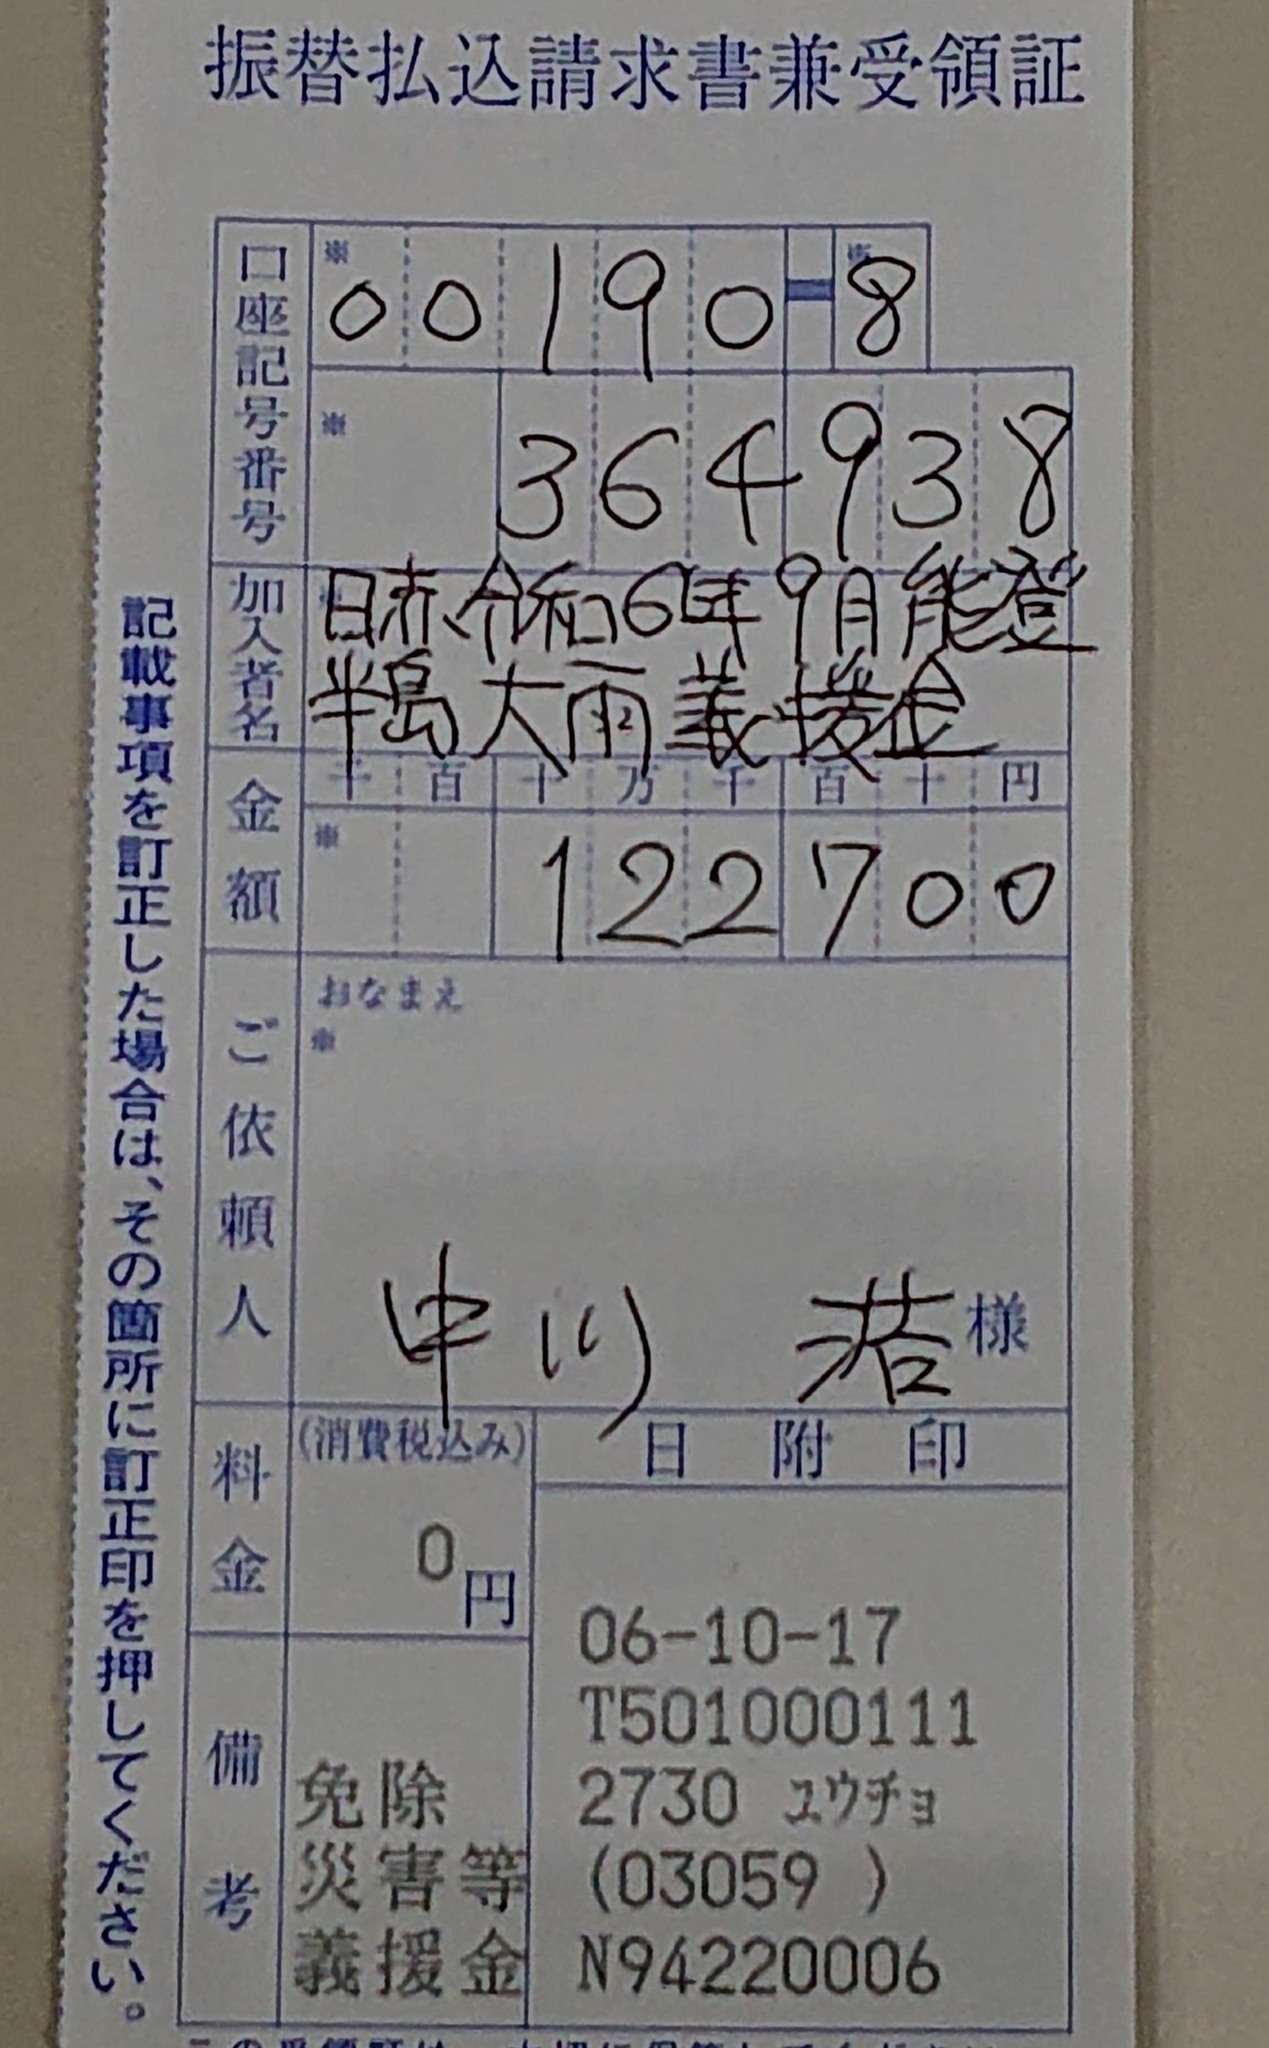 振替払込請求書兼受領証
口座記号番号
※ 00190-※8
※ 364938
加入者名
日赤令和6年9月能登
半島大雨義援金
金額
千百十万千百十円
※ 122700
ご依頼人
おなまえ
※
中川 浩様
料金
(消費税込み)
0円
日附印
06-10-17
T501000111
2730 ユウチョ
(03059 )
N94220006
備考
免除
災害等
義援金
記載事項を訂正した場合は、その箇所に訂正印を押してください。